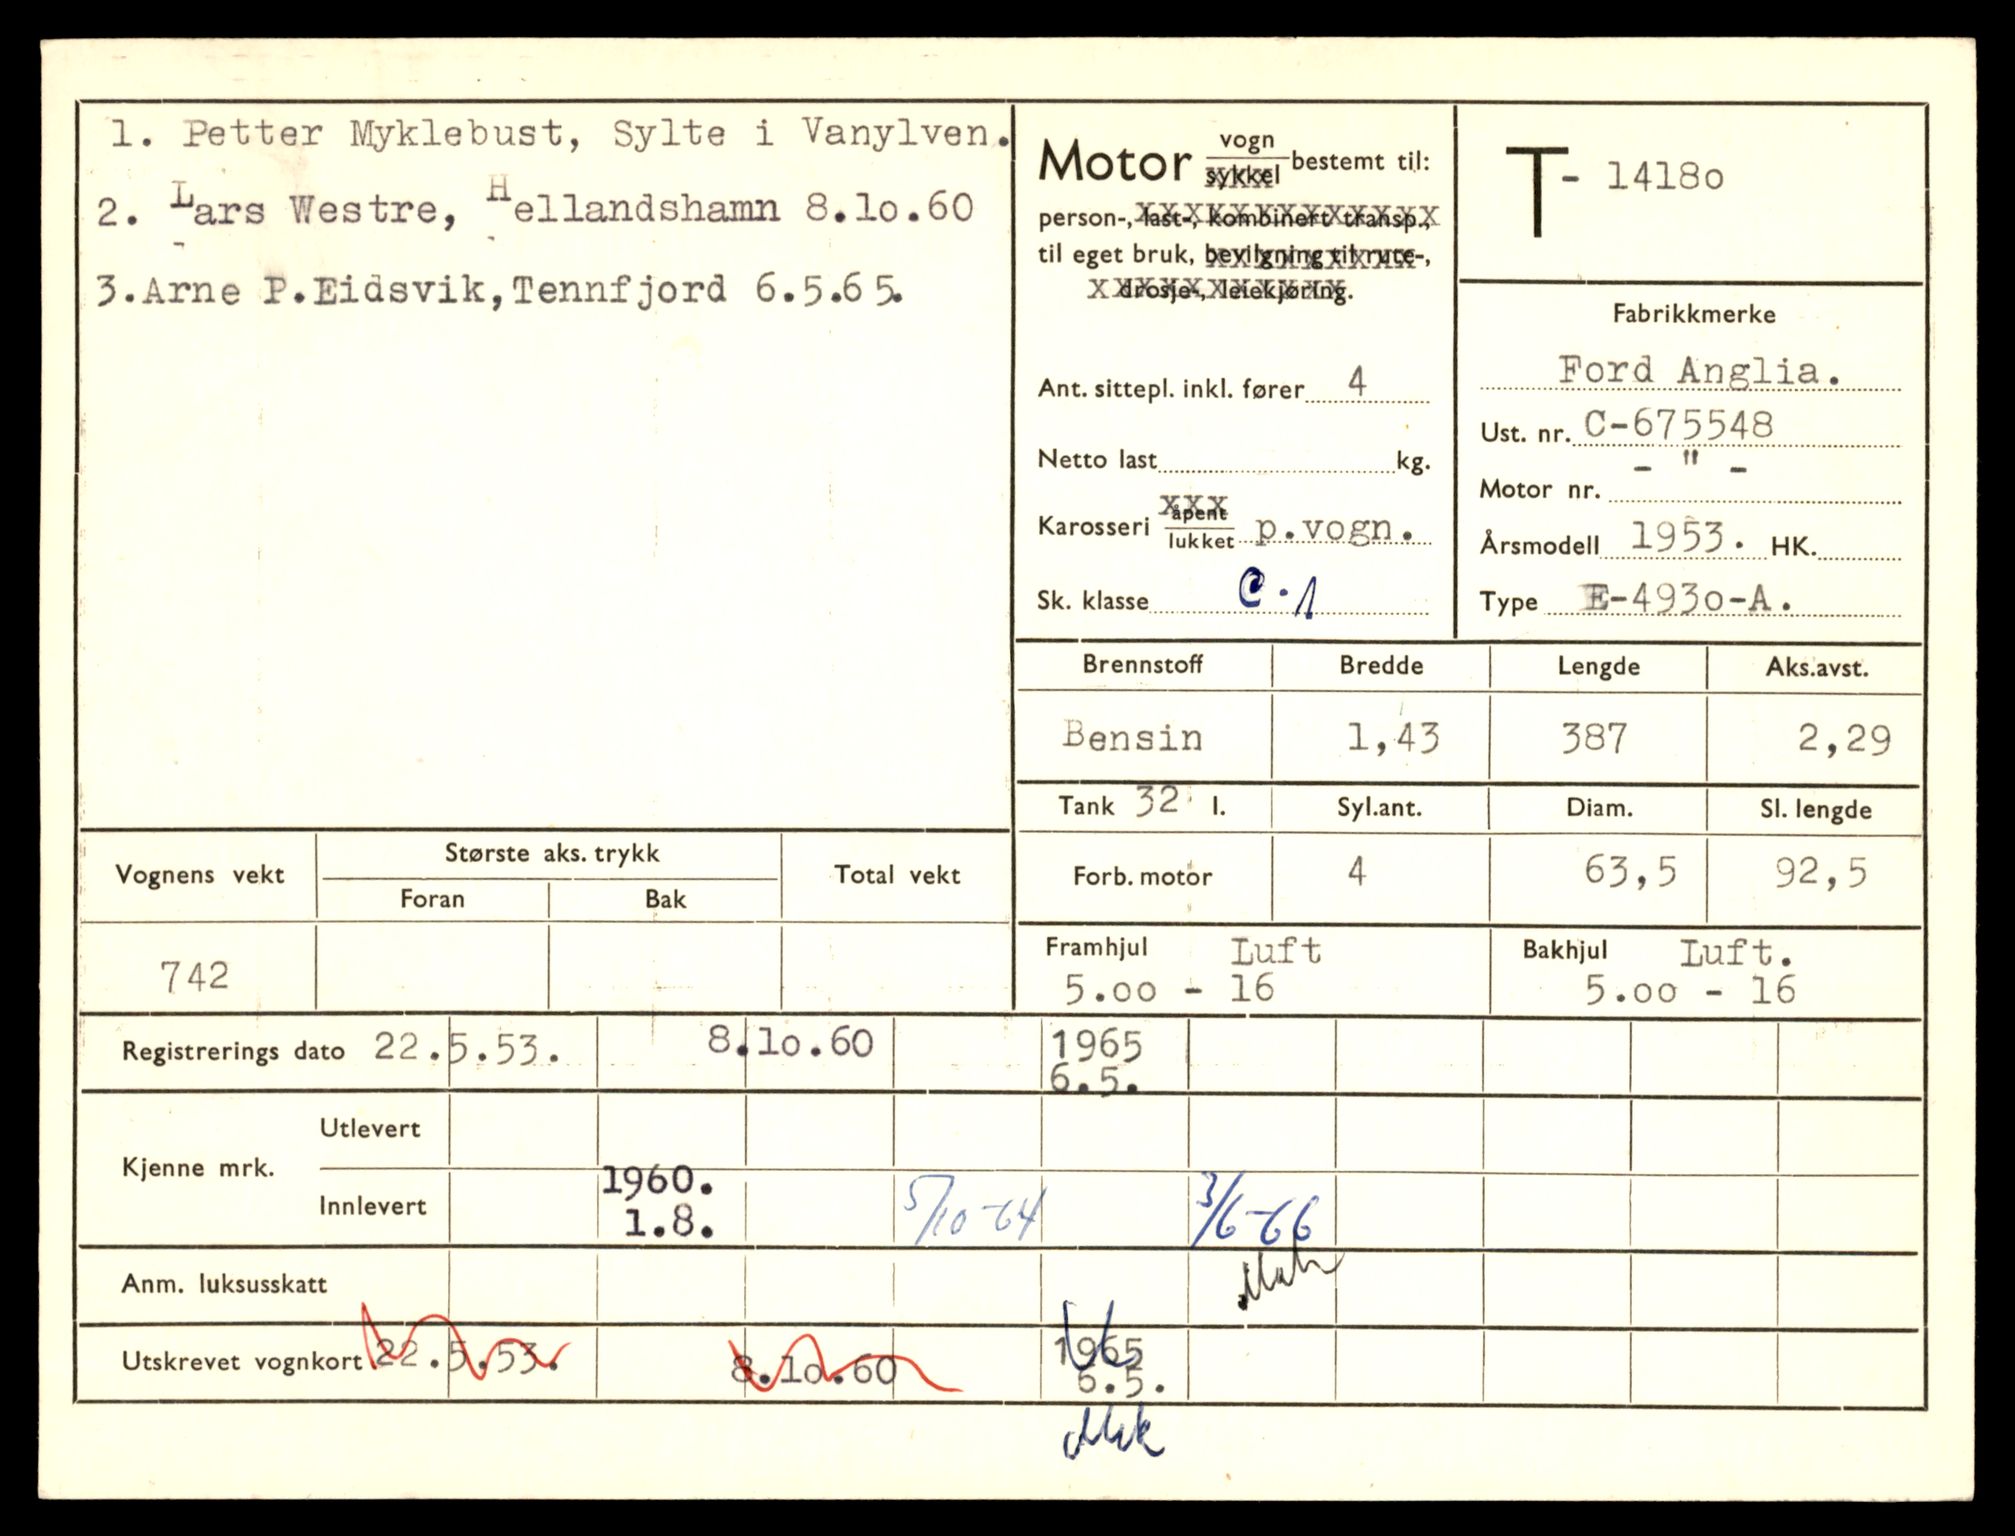 1. Petter Myklebust, Sylte i Vanylven.
2. Lars Westre, Hellandshamn 8.lo.60
3.Arne P.Eidsvik,Tennfjord 6.5.65.
Motor vogn
sykkel bestemt til:
person-, last-, kombinert transp.,
til eget bruk, bevilgning til rute-,
drosje-, leiekjøring.
Ant. sittepl. inkl. fører 4
Netto last kg.
Karosseri åpent
lukket p.vogn.
Sk. klasse C.1
T- 1418o
Fabrikkmerke
Ford Anglia.
Ust. nr. C-675548
Motor nr. - " -
Årsmodell 1953. HK.
Type E-493o-A.
Brennstoff Bredde Lengde Aks.avst.
Bensin 1,43 387 2,29
Tank 32 l. Syl.ant. Diam. Sl. lengde
Forb. motor 4 63,5 92,5
Framhjul Luft Bakhjul Luft.
5.oo - 16 5.oo - 16
Vognens vekt Største aks. trykk Total vekt
Foran Bak
742
Registrerings dato 22.5.53. 8.lo.60 1965
6.5.
Kjenne mrk. Utlevert
Innlevert 1960.
1.8. 5/10-64 3/6-66
Anm. luksusskatt
Utskrevet vognkort 22.5.53. 8.lo.60 1965
6.5.